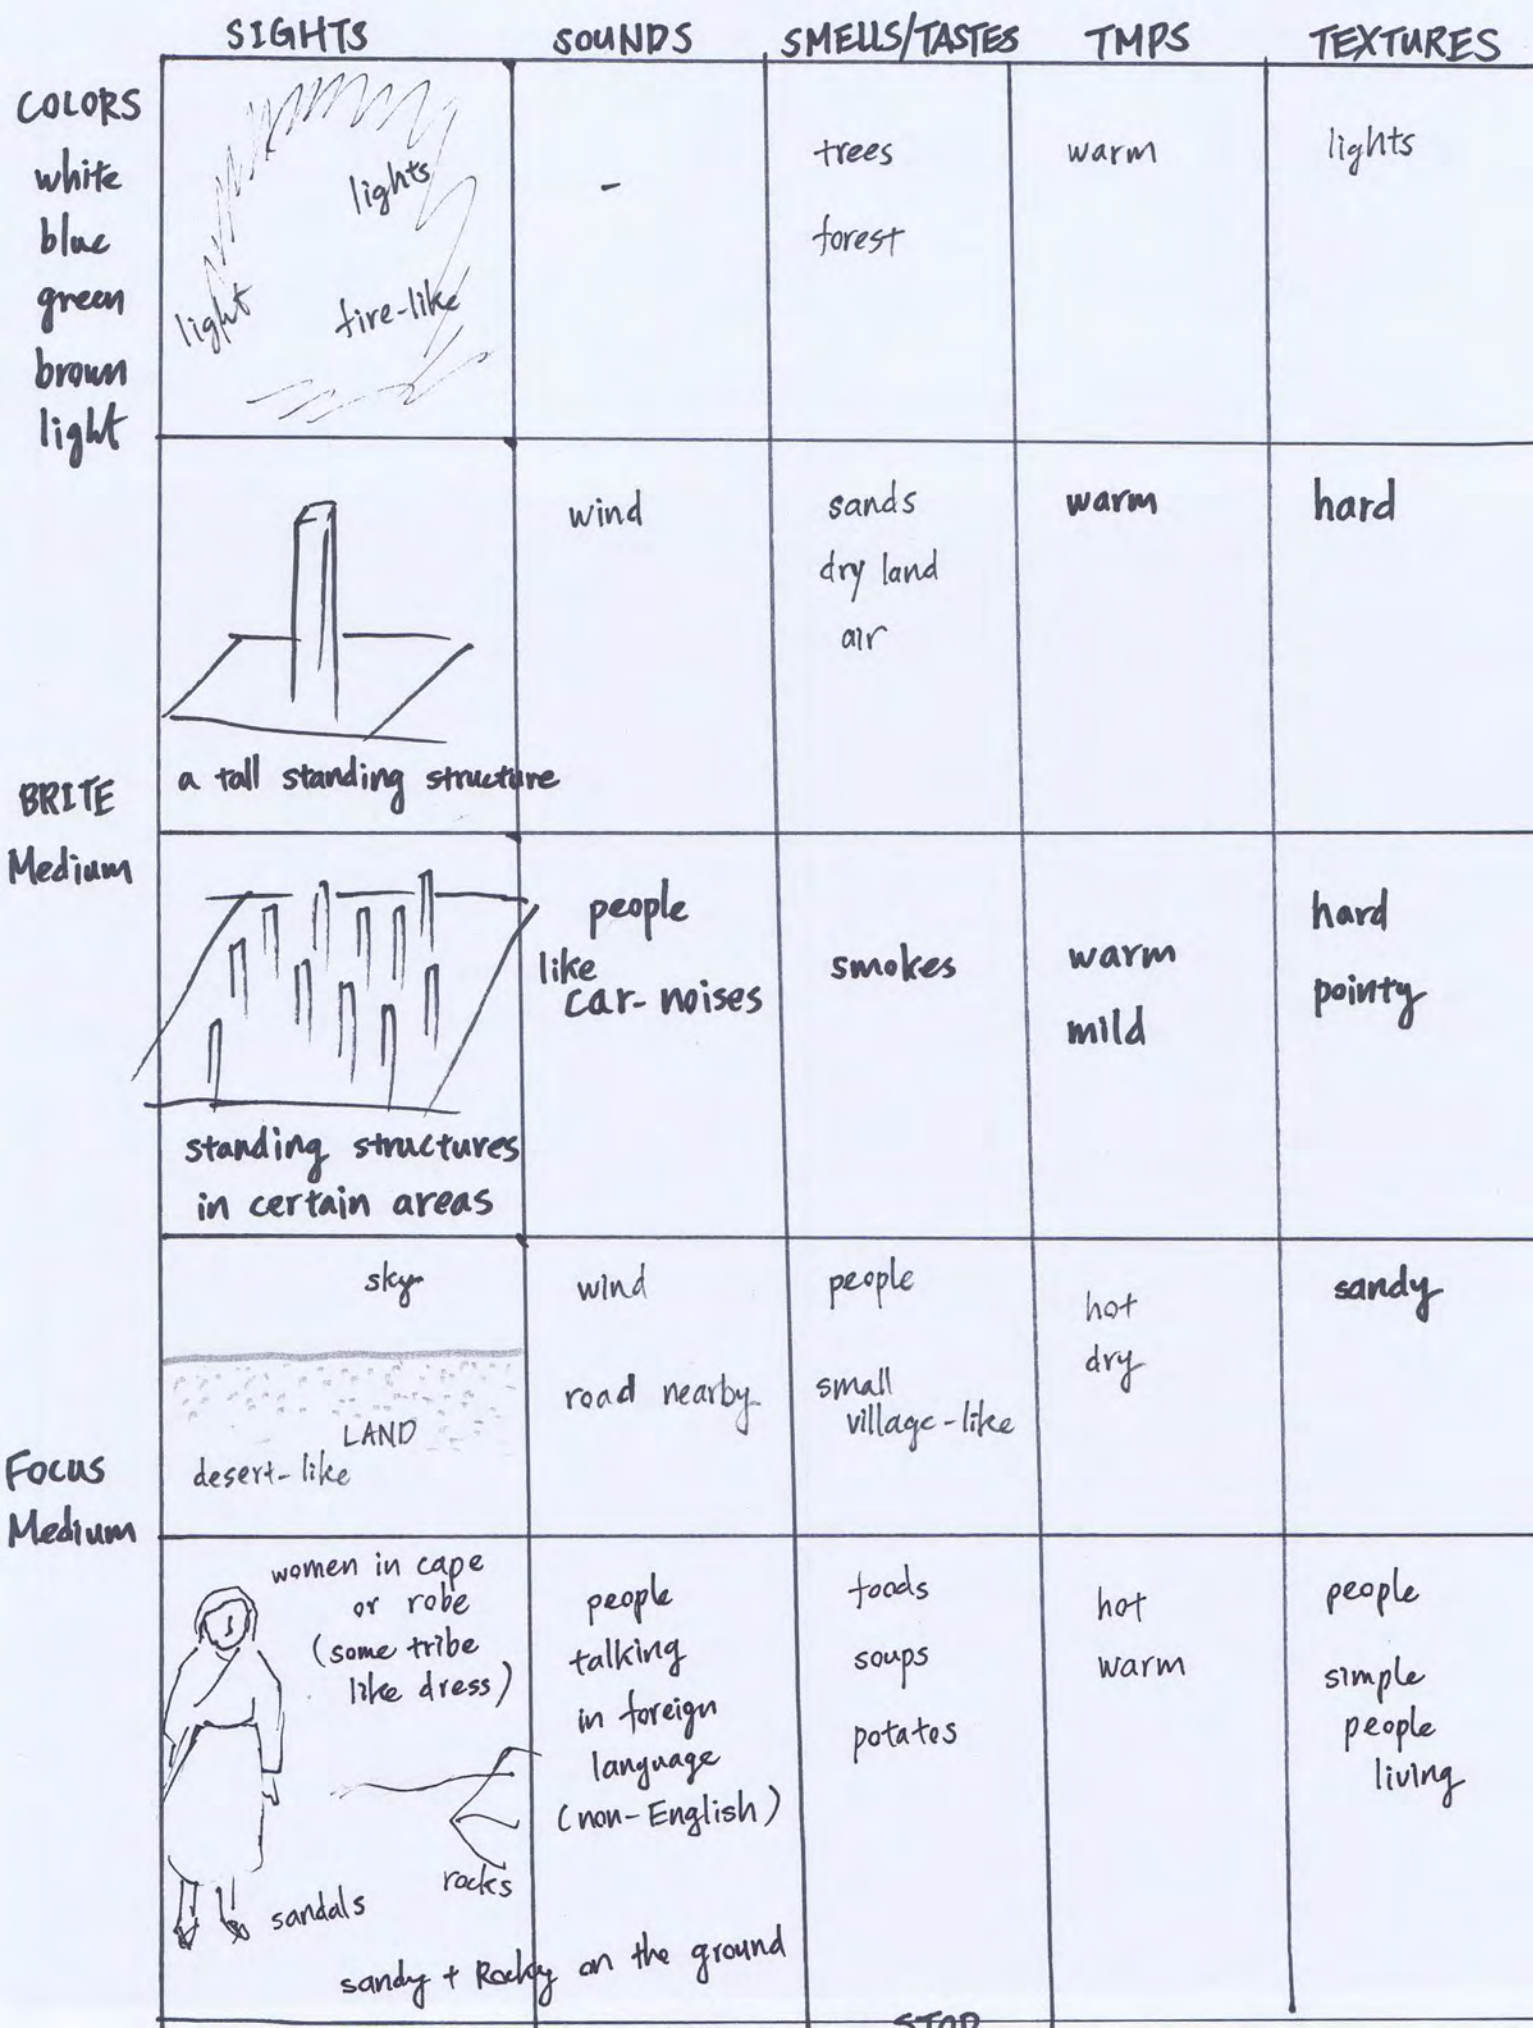 SIGHTS SOUNDS SMELLS/TASTES TMPS TEXTURES
COLORS
white
blue
green
brown
light
lights
light
fire-like
-
trees
forest
warm
lights
a tall standing structure
wind
sands
dry land
air
warm
hard
BRITE
Medium
standing structures
in certain areas
people
like
car-noises
smokes
warm
mild
hard
pointy
sky
LAND
desert-like
wind
road nearby
people
small
village-like
hot
dry
sandy
FOCUS
Medium
women in cape
or robe
(some tribe
like dress)
rocks
sandals
sandy + Rocky on the ground
people
talking
in foreign
language
(non-English)
foods
soups
potates
hot
warm
people
simple
people
living
STOP